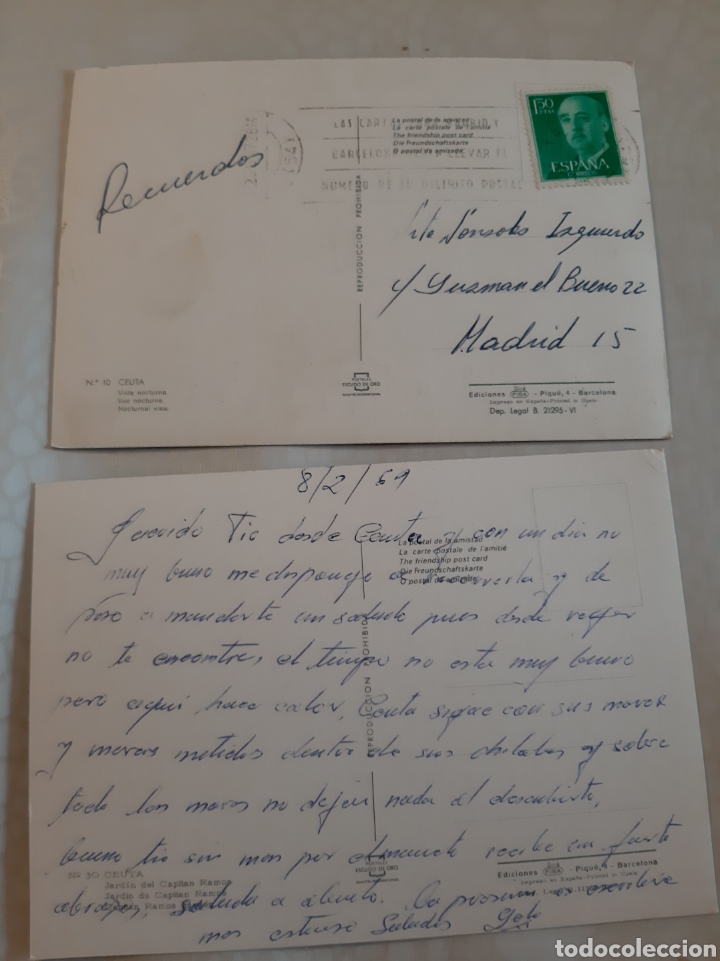 LAS CARTA
BARCELON LLEVAR EL
NUMERO DE SU DISTRITO POSTAL
La postal de la amistad
La carte postale de l'amitié
The friendship post card
Die Freundschaftskarte
O postal da amizade
1'50
PTAS
ESPAÑA
CORREOS
Recuerdos
REPRODUCCION PROHIBIDA
Izquierdo
c/ Guzman el Bueno 22
Madrid 15
N.º 10 CEUTA
Vista nocturna
Vue nocturne
Nocturnal view
POSTALES
ESCUDO DE ORO
Ediciones FISA - Piqué, 4 - Barcelona
Impreso en España-Printed in Spain
Dep. Legal B. 21295-VI
8/2/69
Querido Tio desde Ceuta y con un dia no
La postal de la amistad
La carte postale de l'amitié
The friendship post card
Die Freundschaftskarte
O postal da amizade
muy bueno me dispongo a y de
paso a mandarte un saludo pues desde
no te encontre, el tiempo no esta muy bueno
REPRODUCCION PROHIBIDA
pero aqui hace calor, Ceuta sigue con sus moros
y moras metidos dentro de sus chilabas y sobre
todo las moras no dejan nada al descubierto,
bueno tio sin mas por el momento recibe un fuerte
Nº 30 CEUTA
Jardin del Capitan Ramos
Jardin du Capitan Ramos
Ramos
POSTALES
ESCUDO DE ORO
Ediciones FISA - Piqué, 4 - Barcelona
Impreso en España-Printed in Spain
abrazo, saluda a abuelo. La proxima os escribire
mas extenso Saludos
todocoleccion